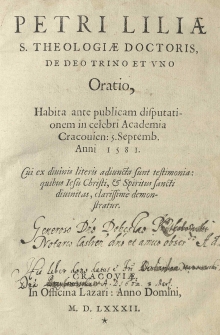 PETRI LILIÆ
S. THEOLOGIÆ DOCTORIS,
DE DEO TRINO ET VNO
Oratio,
Habita ante publicam disputati-
onem in celebri Academia
Cracouien: 5. Septemb.
Anni 1581.
Cui ex diuinis literis adiuncta sunt testimonia:
quibus Iesu Christi, & Spiritus sancti
diuinitas, clarissime demon-
stratur.
Generoso Dno
et amico
liber
CRACOVIÆ,
In Officina Lazari: Anno Domini,
M. D. LXXXII.